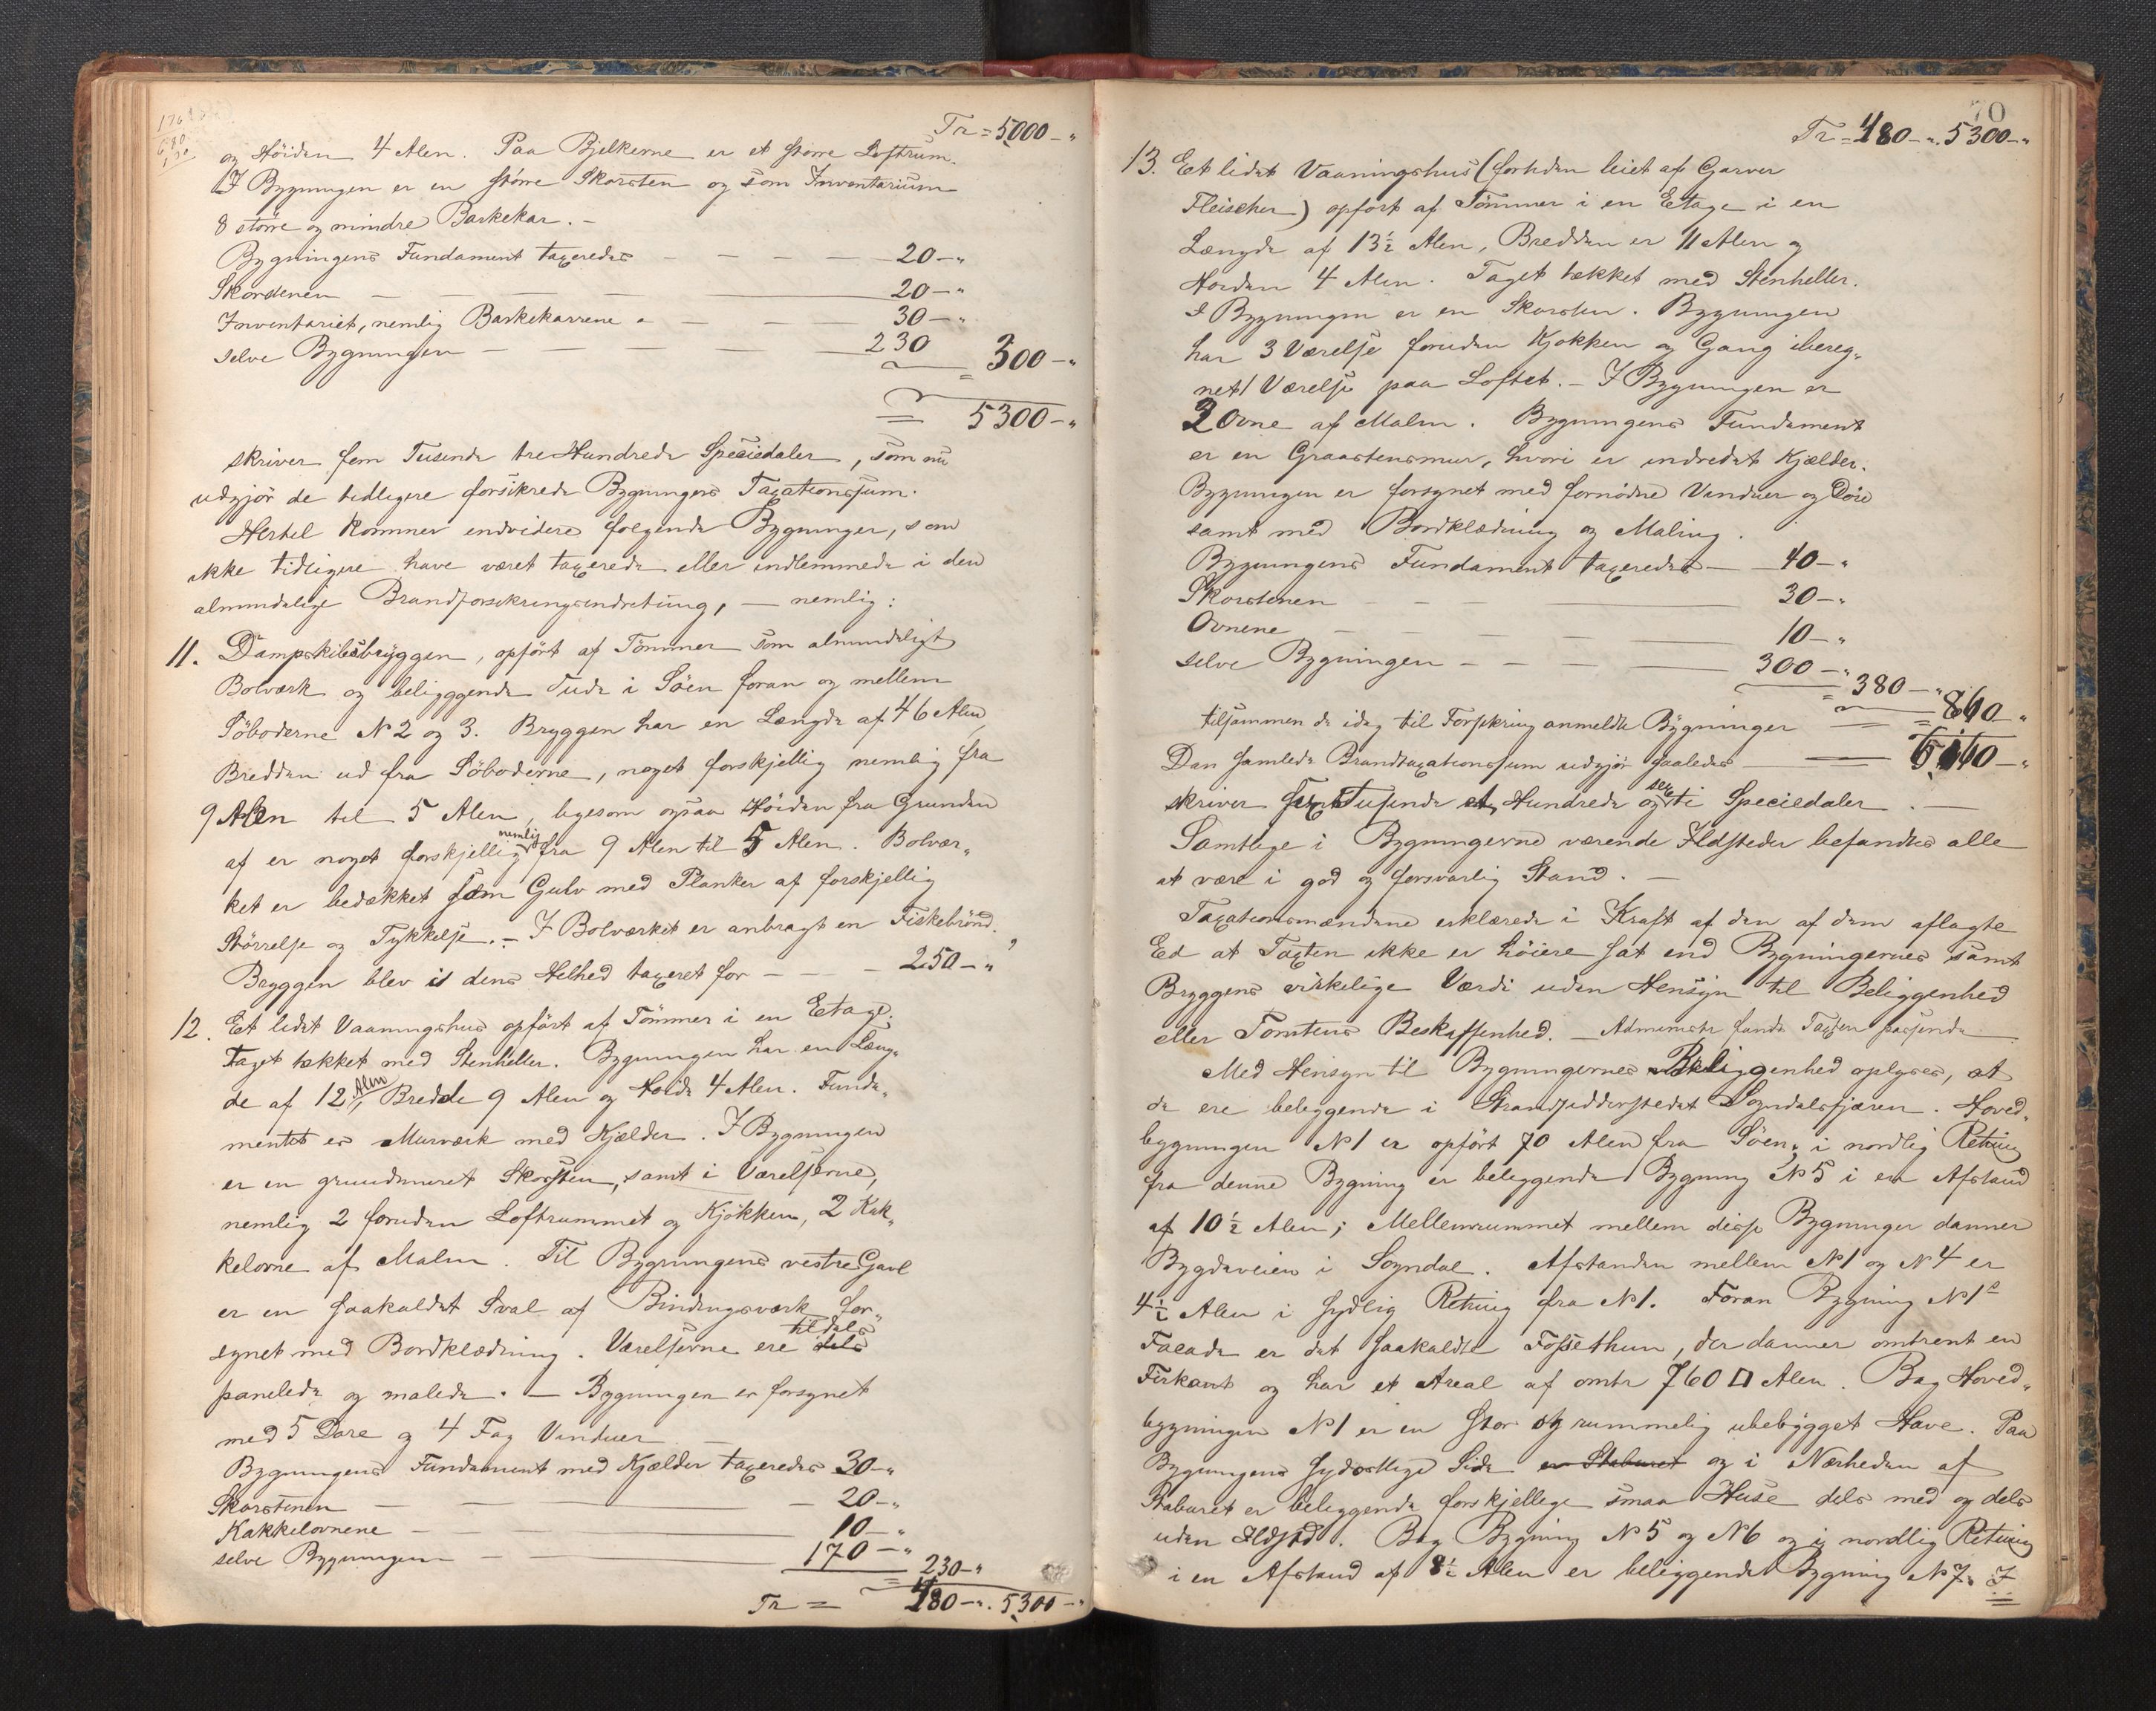 Tr = 5000 - "
og Höiden 4 Alen. Paa Bjelkerne er et större Loftrum.
I Bygningen er en större Skorsten og som Inventarium
8 större og mindre Barkekar. -
Bygningens Fundament taxeredes - - - - 20 - "
Skorstenen - - - - 20 - "
Inventariet, nemlig Barkekarrene - - - 30 - "
selve Bygningen - - - - 230
= 300 - "
= 5300 - "
skriver fem Tusende tre Hundrede Speciedaler, som nu
udgjör de tidligere forsikrede Bygningers Taxationssum.
Hertil kommer endvidere følgende Bygninger, som
ikke tidligere have været taxerede eller indlemmede i den
almindelige Brandforsikringsindretning, - nemlig:
11. Dampskibsbryggen, opfört af Tömmer som almindeligt
Bolværk og beliggende ude i Söen foran og mellem
Söboderne N 2 og 3. Bryggen har en Længde af 46 Alen,
Bredden ud fra Söboderne, noget forskjellig nemlig fra
9 Alen til 5 Alen, ligesom ogsaa Höiden fra Grunden
af er noget forskjellig nemlig fra 9 Alen til 5 Alen. Bolvær-
ket er bedækket som Gulv med Planker af forskjellig
Störrelse og Tykkelse. - I Bolværket er anbragt en Fiskebrönd.
Bryggen blev i dens Helhed taxeret for - - - 250 - "
12. Et lidet Vaaningshus opfört af Tömmer i en Etage.
Taget tækket med Stenheller. Bygningen har en Læng-
de af 12 Alen, Bredde 9 Alen og Høide 4 Alen. Funda-
mentet er Murværk med Kjælder. I Bygningen
er en grundmuret Skorsten, samt i Værelserne,
nemlig 2 foruden Loftrummet og Kjökken, 2 Kak-
kelovne af Malm. Til Bygningens vestre Gavl
er en saakaldet Sval af Bindingsværk for-
synet med Bordklædning. Værelserne ere tildels
panelede og malede. - Bygningen er forsynet
med 5 Døre og 4 Fag Vinduer -
Bygningens Fundament med Kjælder taxeredes 30 - "
Skorstenen - - - - 20 - "
Kakkelovnene - - - 10 - "
selve Bygningen - - - 170 - "
= 230 - "
Tr = 480 - ". 5300 - "
70
Tr = 480 - ". 5300 - "
13. Et lidet Vaaningshus (forhen leiet af Garver
Fleischer) opfört af Tömmer i en Etage i en
Længde af 13½ Alen, Bredden er 11 Alen og
Høiden 4 Alen. Taget tækket med Stenheller.
I Bygningen er en Skorsten. Bygningen
har 3 Værelser foruden Kjøkken og Gang ibereg-
net 1 Værelse paa Loftet. - I Bygningen er
2 Ovne af Malm. Bygningens Fundament
er en Graastensmur, hvori er indredet Kjælder.
Bygningen er forsynet med fornödne Vinduer og Döre
samt med Bordklædning og Maling.
Bygningens Fundament taxeredes - 40 - "
Skorstenen - - - 30 - "
Ovnene - - - 10 - "
selve Bygningen - - - 300 - "
= 380 - "
tilsammen de idag til Forsikring anmeldte Bygninger = 860 "
Den samlede Brandtaxationssum udgjör saaledes - 6160 - "
skriver sex Tusende et Hundrede og sexti Speciedaler. -
Samtlige i Bygningerne værende Ildsteder befandtes alle
at være i god og forsvarlig Stand. -
Taxationsmændene erklærede i Kraft af den af dem aflagte
Ed at Taxten ikke er höiere sat end Bygningernes samt
Bryggens virkelige Værdi uden Hensyn til Beliggenhed
eller Tomtens Beskaffenhed. - Administr fandt Taxten passende
Med Hensyn til Bygningernes Beliggenhed oplyses, at
de ere beliggende i Strandsidderstedet Sogndalsfjæren. Hoved-
bygningen N 1 er opfört 70 Alen fra Söen; i nordlig Retning
fra denne Bygning er beliggende Bygning N 5 i en Afstand
af 10½ Alen; Mellemrummet mellem disse Bygninger danner
Bygdeveien i Sogndal. Afstanden mellem N 1 og N 4 er
4½ Alen i sydlig Retning fra N 1. Foran Bygning N 1s
Facade er det saakaldte Fossethun, der danner omtrent en
Firkant og har et Areal af omtr 760 □ Alen. Bag Hoved-
bygningen N 1 er en stor og rummelig ubebygget Have. Paa
Bygningens sydostlige Side er Staburet og i Nærheden af
Staburet er beliggende forskjellige smaa Huse dels med og dels
uden Ildsted. Bag Bygning N 5 og N 6 og i nordlig Retning
i en Afstand af 8½ Alen er beliggende Bygning N 7. I